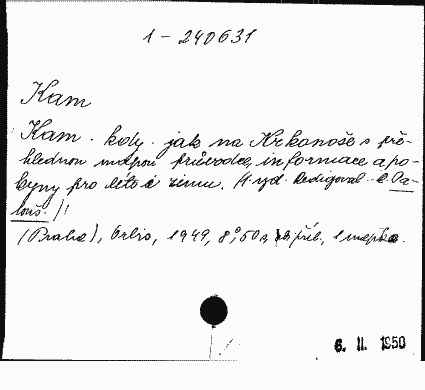 1 - 240631
Kam
Kam . kdy . jak na Krkonoše s pře-
hlednou mapou průvodce, informace a po-
kyny pro léto i zimu. /1. vyd. Redigoval L. Pa-
louš. /
(Praha), Orbis, 1949, 8°, 50 s, příl., 1 mapka.
6. II. 1950